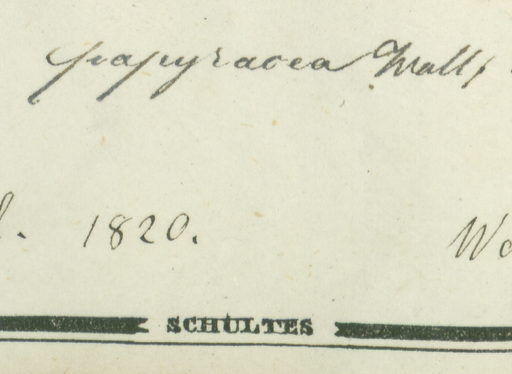 papyracea Wall
1820.
SCHULTES